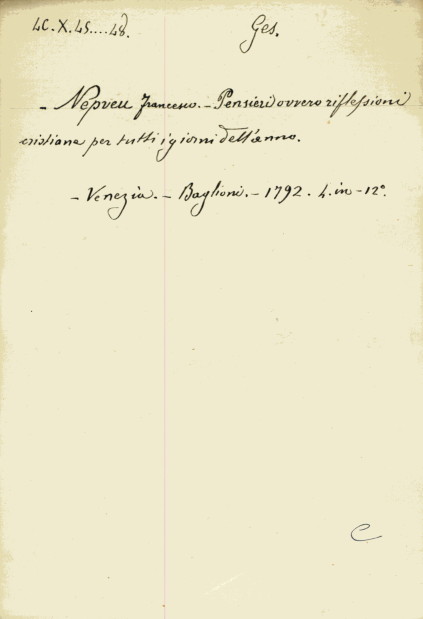 4C.X.45....48.
Ges.
- Nepveu Francesco. - Pensieri ovvero riflessioni
cristiane per tutti i giorni dell'anno.
- Venezia. - Baglioni. - 1792. 4. in - 12°.
C